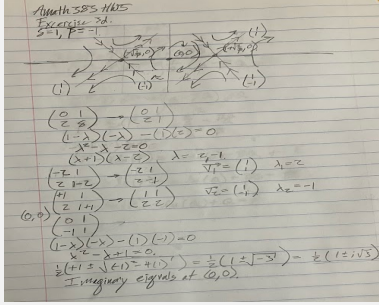 Amath 383 HW5
Exercise 3d.
S=1, P=-1
(0,0)
(1 1)
(1 -1)
(1)
(-1)
(0 1 / 2 S) → (0 1 / 2 1)
(1-λ)(-λ) - (1)(2) = 0
λ² - λ - 2 = 0
(λ+1)(λ-2) λ = 2, -1
(-2 1 / 2 1-2) → (-2 1 / 2 -1) λ₁ = 2
(+1 1 / 2 1+1) → (1 1 / 2 2) λ₂ = -1
(0,0) (0 1 / -1 1)
(1-λ)(-λ) - (1)(-1) = 0
λ² - λ + 1 = 0
½(+1 ± √((-1)² - 4(1))) = ½(1 ± √-3) = ½(1 ± i√3)
Imaginary eigvals at (0,0)